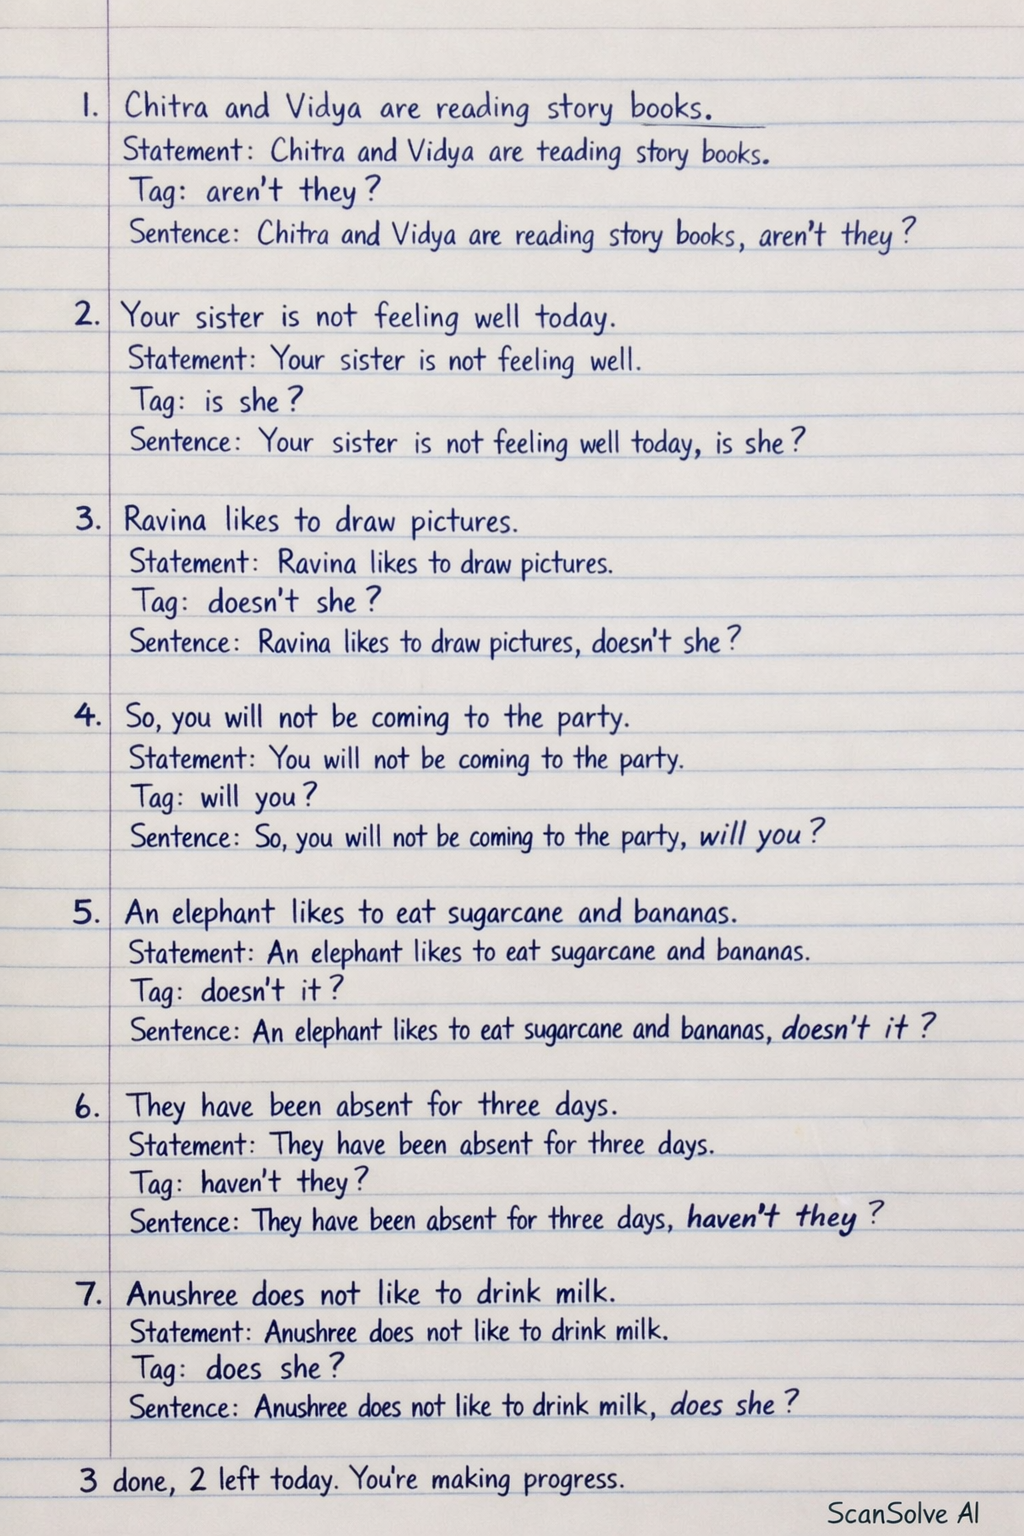 1. Chitra and Vidya are reading story books.
Statement: Chitra and Vidya are teading story books.
Tag: aren't they?
Sentence: Chitra and Vidya are reading story books, aren't they?
2. Your sister is not feeling well today.
Statement: Your sister is not feeling well.
Tag: is she?
Sentence: Your sister is not feeling well today, is she?
3. Ravina likes to draw pictures.
Statement: Ravina likes to draw pictures.
Tag: doesn't she?
Sentence: Ravina likes to draw pictures, doesn't she?
4. So, you will not be coming to the party.
Statement: You will not be coming to the party.
Tag: will you?
Sentence: So, you will not be coming to the party, will you?
5. An elephant likes to eat sugarcane and bananas.
Statement: An elephant likes to eat sugarcane and bananas.
Tag: doesn't it?
Sentence: An elephant likes to eat sugarcane and bananas, doesn't it?
6. They have been absent for three days.
Statement: They have been absent for three days.
Tag: haven't they?
Sentence: They have been absent for three days, haven't they?
7. Anushree does not like to drink milk.
Statement: Anushree does not like to drink milk.
Tag: does she?
Sentence: Anushree does not like to drink milk, does she?
3 done, 2 left today. You're making progress.
ScanSolve AI